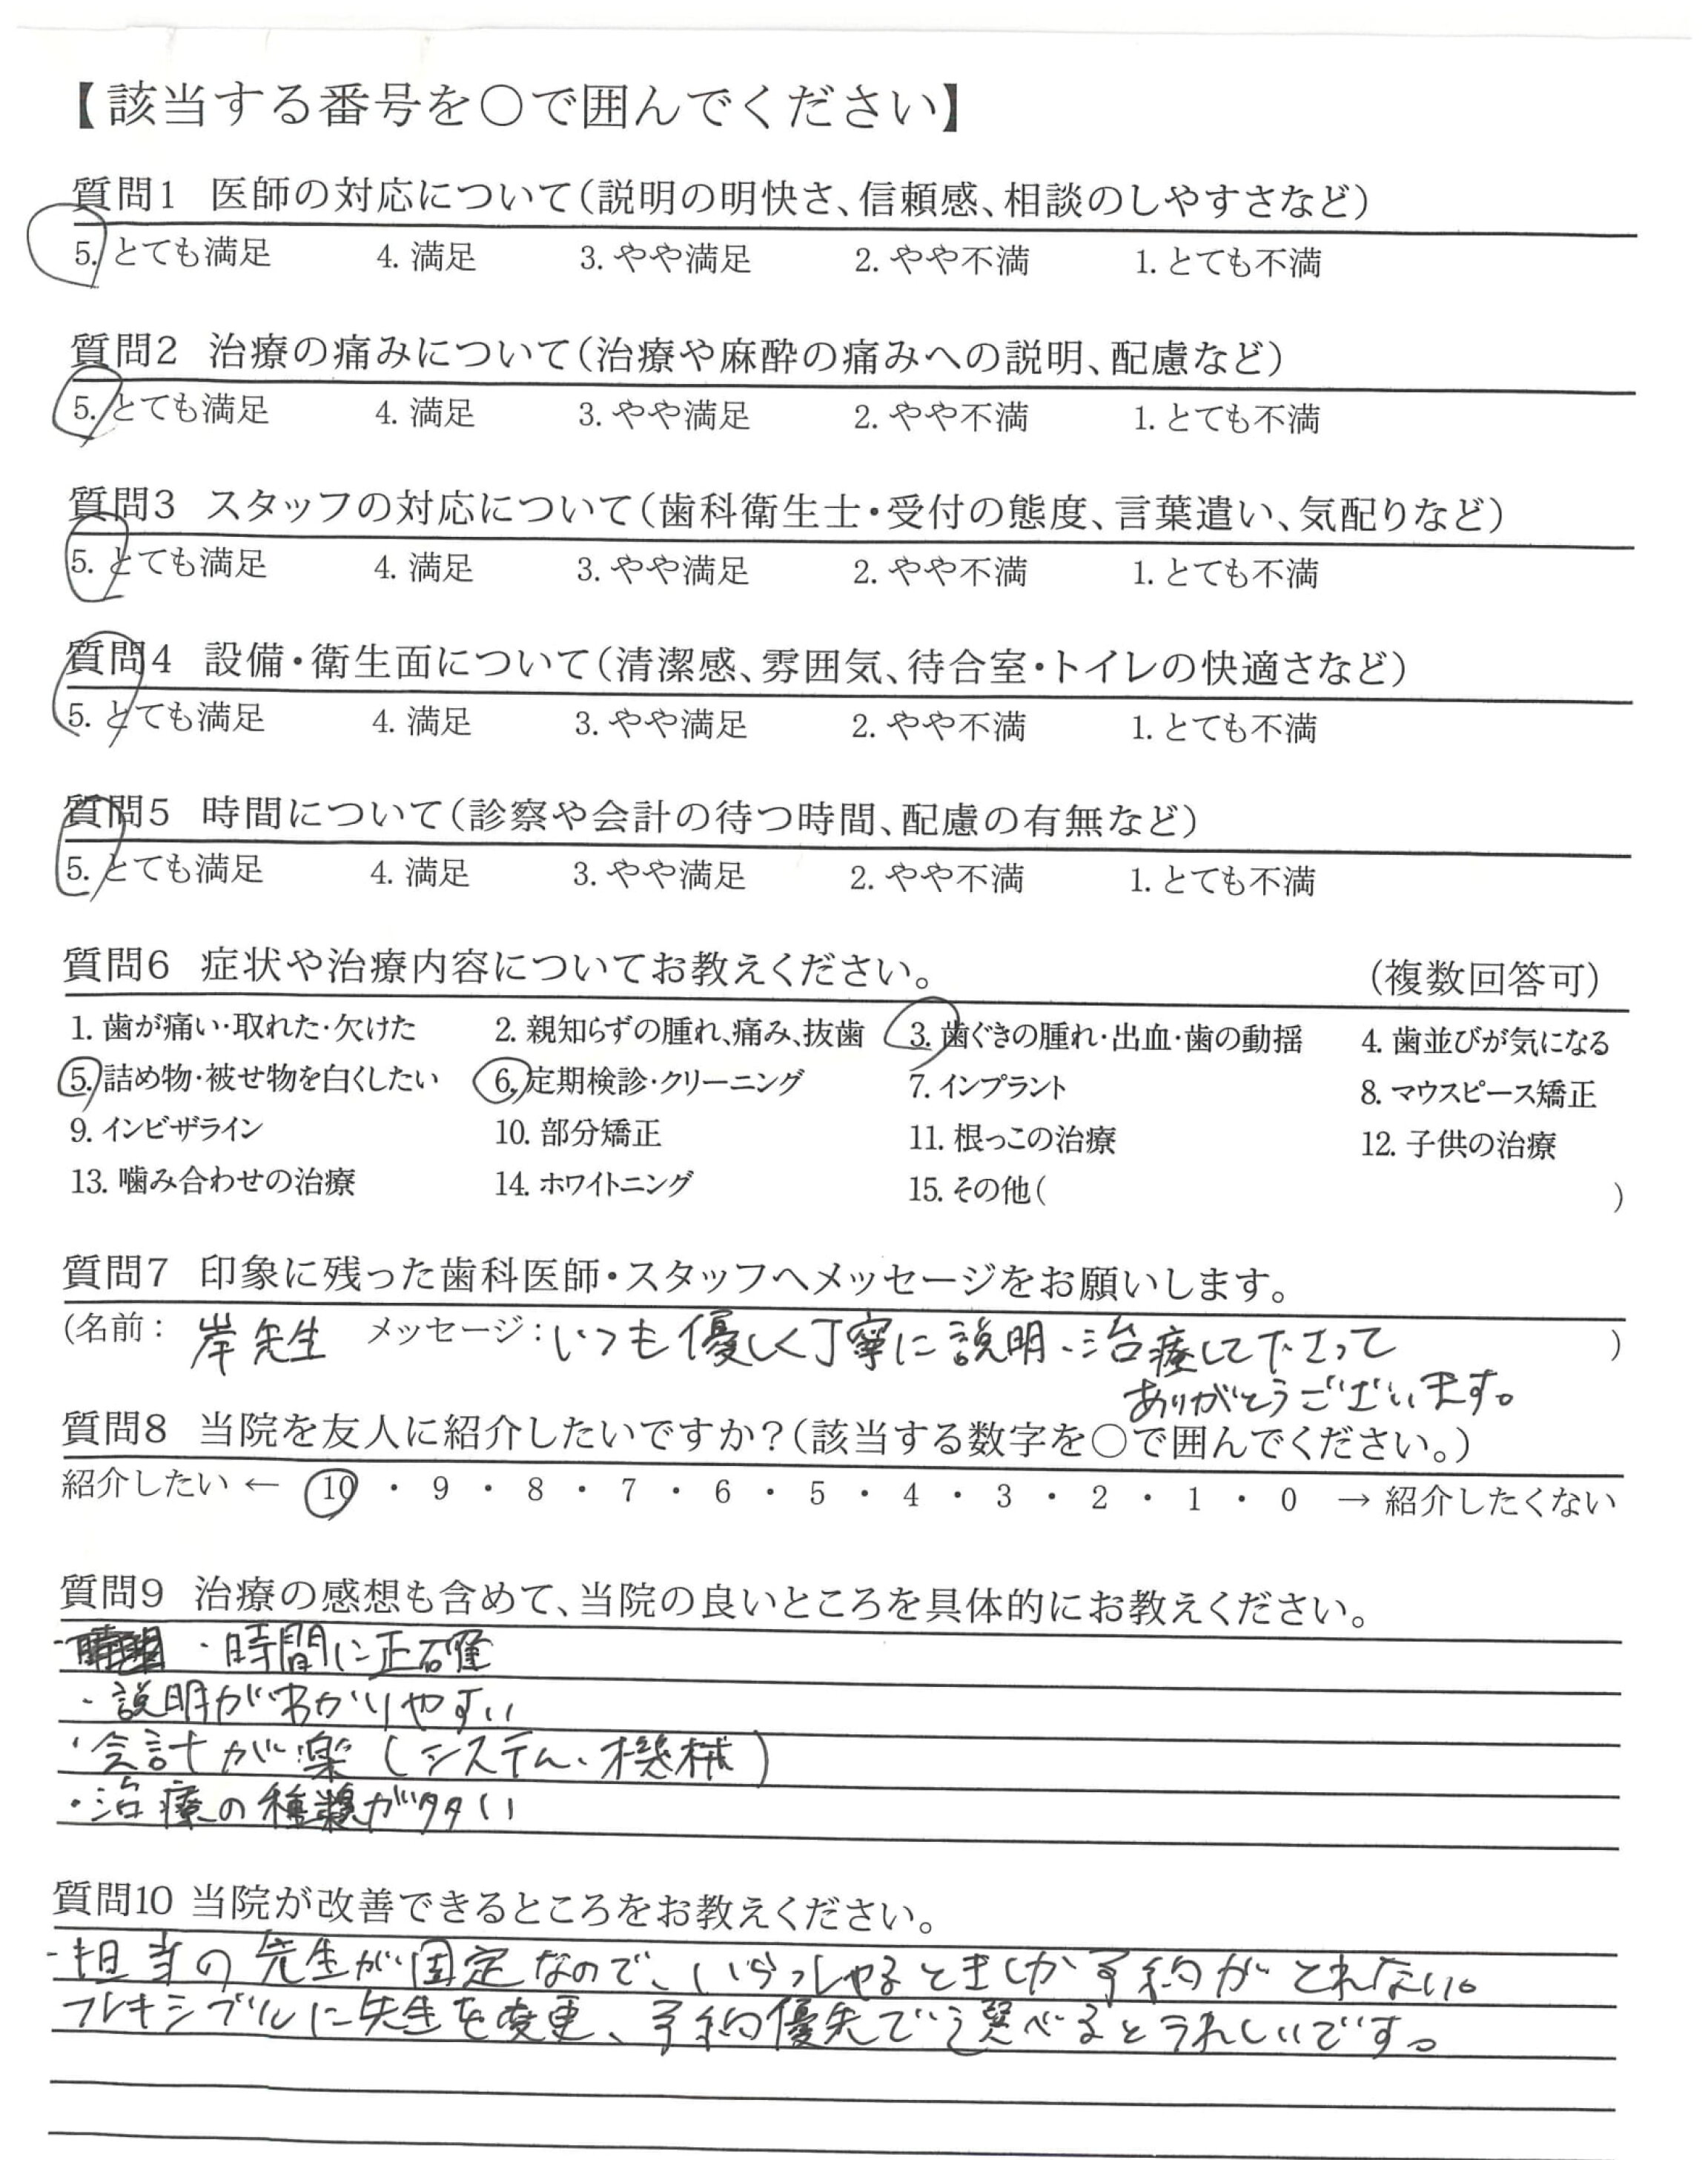 【該当する番号を○で囲んでください】
質問1 医師の対応について(説明の明快さ、信頼感、相談のしやすさなど)
5. とても満足 4. 満足 3. やや満足 2. やや不満 1. とても不満
質問2 治療の痛みについて(治療や麻酔の痛みへの説明、配慮など)
5. とても満足 4. 満足 3. やや満足 2. やや不満 1. とても不満
質問3 スタッフの対応について(歯科衛生士・受付の態度、言葉遣い、気配りなど)
5. とても満足 4. 満足 3. やや満足 2. やや不満 1. とても不満
質問4 設備・衛生面について(清潔感、雰囲気、待合室・トイレの快適さなど)
5. とても満足 4. 満足 3. やや満足 2. やや不満 1. とても不満
質問5 時間について(診察や会計の待つ時間、配慮の有無など)
5. とても満足 4. 満足 3. やや満足 2. やや不満 1. とても不満
質問6 症状や治療内容についてお教えください。 (複数回答可)
1. 歯が痛い・取れた・欠けた 2. 親知らずの腫れ、痛み、抜歯 3. 歯ぐきの腫れ・出血・歯の動揺 4. 歯並びが気になる
5. 詰め物・被せ物を白くしたい 6. 定期検診・クリーニング 7. インプラント 8. マウスピース矯正
9. インビザライン 10. 部分矯正 11. 根っこの治療 12. 子供の治療
13. 噛み合わせの治療 14. ホワイトニング 15. その他( )
質問7 印象に残った歯科医師・スタッフへメッセージをお願いします。
(名前: 岸先生 メッセージ: いつも優しく丁寧に説明、治療して下さって )
ありがとうございます。
質問8 当院を友人に紹介したいですか?(該当する数字を○で囲んでください。)
紹介したい ← 10 ・ 9 ・ 8 ・ 7 ・ 6 ・ 5 ・ 4 ・ 3 ・ 2 ・ 1 ・ 0 → 紹介したくない
質問9 治療の感想も含めて、当院の良いところを具体的にお教えください。
・時間に正確
・説明がわかりやすい
・会計が楽(システム、機械)
・治療の種類が多い
質問10 当院が改善できるところをお教えください。
・担当の先生が固定なので、いらっしゃるときしか予約がとれない。
フレキシブルに先生を変更、予約優先で選べるとうれしいです。